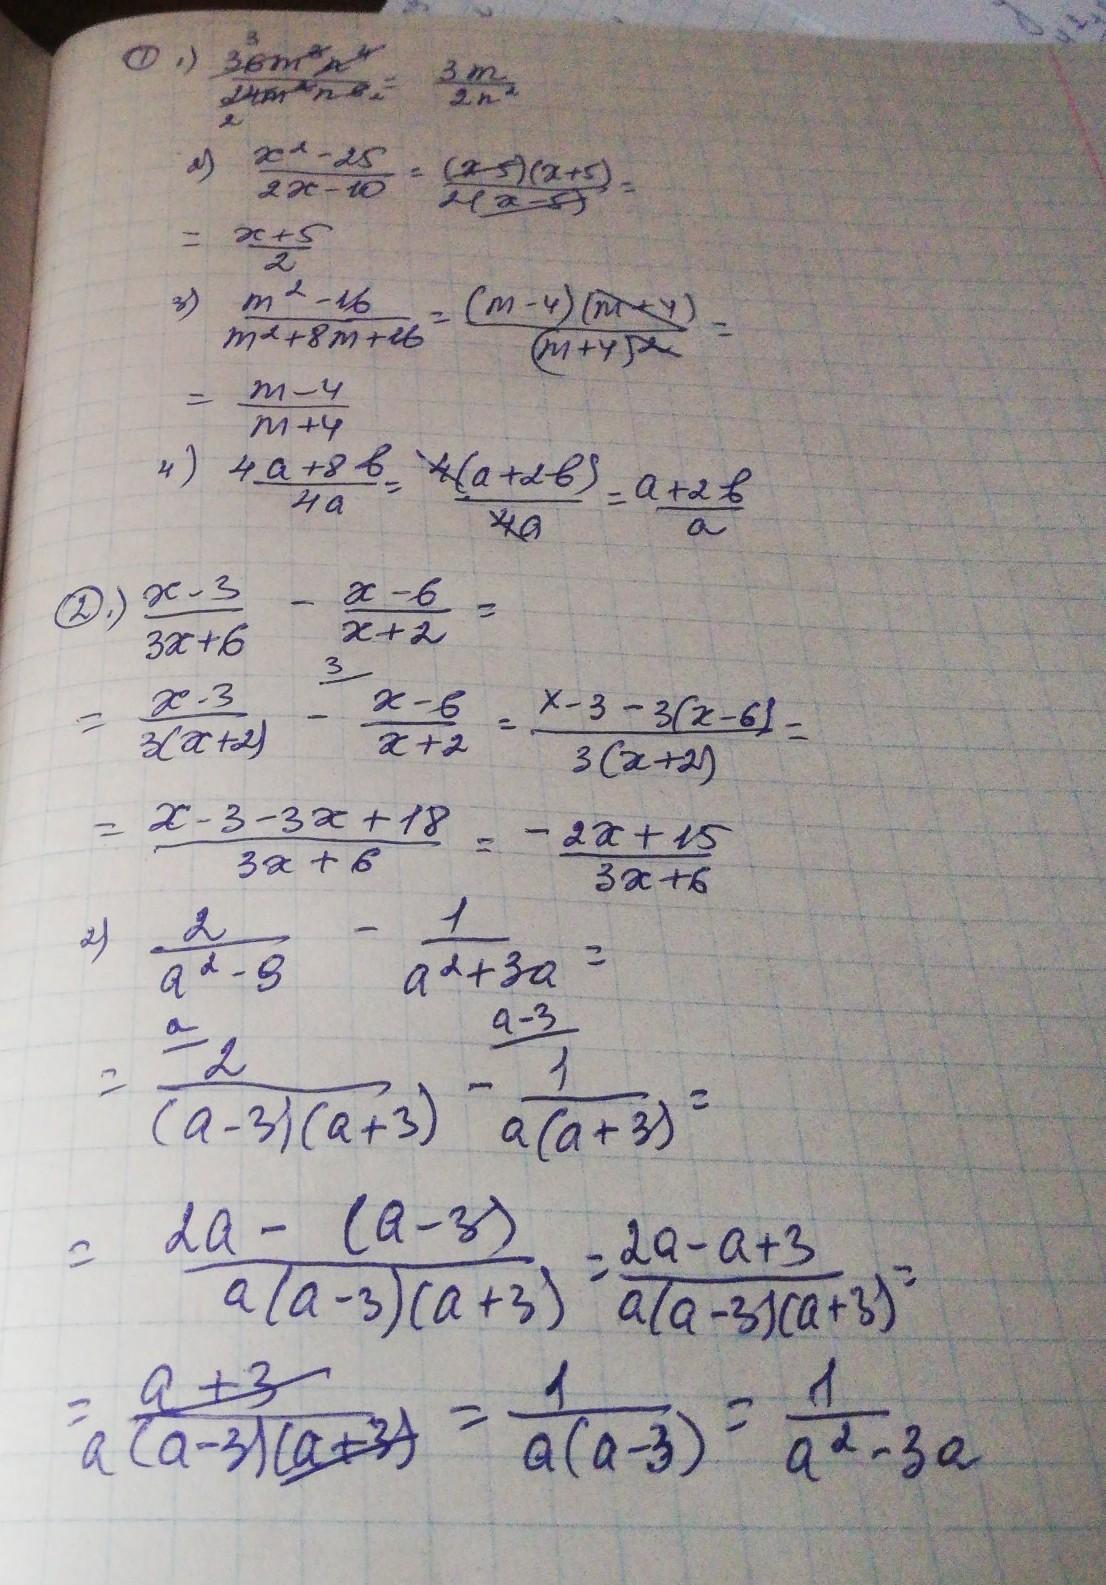 ① 1) 36m³n⁴ / 24m²n⁶ = 3m / 2n²
3
2
2) x² - 25 / 2x - 10 = (x-5)(x+5) / 2(x-5) =
= x+5 / 2
3) m² - 16 / m² + 8m + 16 = (m-4)(m+4) / (m+4)² =
= m-4 / m+4
4) 4a + 8b / 4a = 4(a+2b) / 4a = a+2b / a
② 1) x-3 / 3x+6 - x-6 / x+2 =
3
= x-3 / 3(x+2) - x-6 / x+2 = x-3-3(x-6) / 3(x+2) =
= x-3-3x+18 / 3x+6 = -2x+15 / 3x+6
2) 2 / a²-9 - 1 / a²+3a =
a a-3
= 2 / (a-3)(a+3) - 1 / a(a+3) =
= 2a-(a-3) / a(a-3)(a+3) = 2a-a+3 / a(a-3)(a+3) =
= a+3 / a(a-3)(a+3) = 1 / a(a-3) = 1 / a²-3a